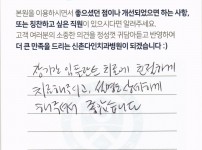 본원을 이용하시면서 좋으셨던 점이나 개선되었으면 하는 사항,
또는 칭찬하고 싶은 직원이 있으시다면 알려주세요.
고객 여러분의 소중한 의견을 정성껏 귀담아듣고 반영하여
더 큰 만족을 드리는 신촌다인치과병원이 되겠습니다 :)
임플란트 치료에 친절하게
치료해주시고, 설명도 상세하게
해주셔서 좋았습니다